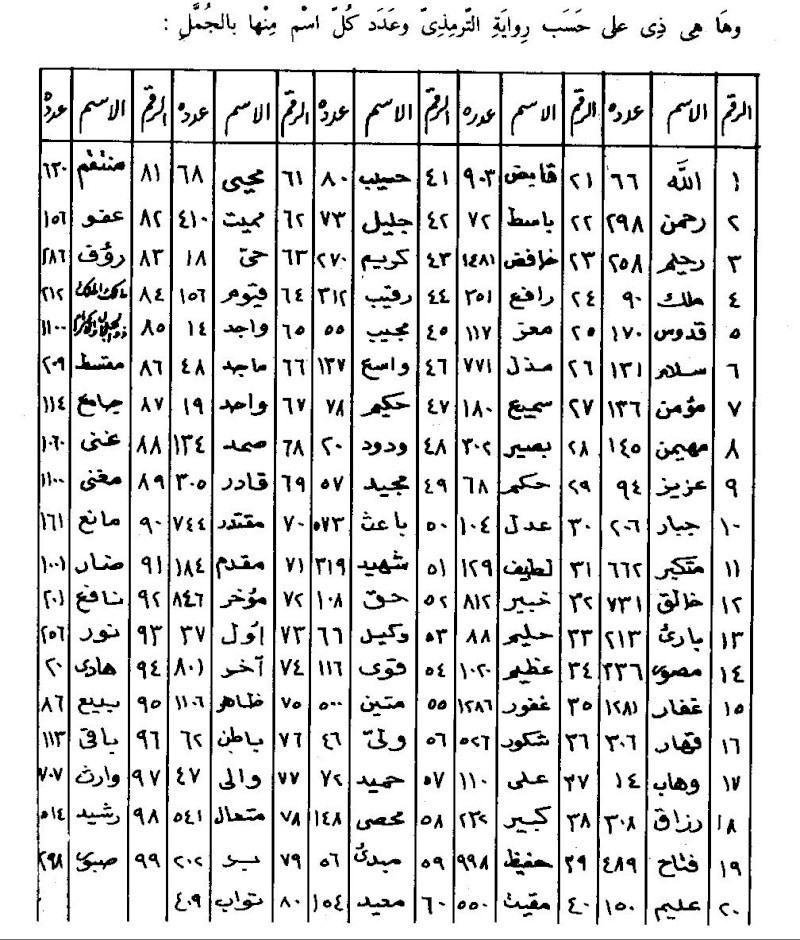 وهَا هِى ذِى على حَسَب رِوايَةِ التّرمِذِىّ وعَدَد كُلّ اسْم مِنْها بالجُمَّلِ :
الرقم الاسم عدده الرقم الاسم عدده الرقم الاسم عدده الرقم الاسم عدده الرقم الاسم عدده
١ الله ٦٦ ٢١ قابض ٩٠٣ ٤١ حسيب ٨٠ ٦١ محيى ٦٨ ٨١ منتقم ٦٣٠
٢ رحمن ٢٩٨ ٢٢ باسط ٧٢ ٤٢ جليل ٧٣ ٦٢ مميت ٤١٠ ٨٢ عفو ١٥٦
٣ رحيم ٢٥٨ ٢٣ خافض ١٤٨١ ٤٣ كريم ٢٧٠ ٦٣ حىّ ١٨ ٨٣ رؤف ٢٨٦
٤ ملك ٩٠ ٢٤ رافع ٣٥١ ٤٤ رقيب ٣١٢ ٦٤ قيوم ١٥٦ ٨٤ مالك الملك ٢١٢
٥ قدوس ١٧٠ ٢٥ معز ١١٧ ٤٥ مجيب ٥٥ ٦٥ واجد ١٤ ٨٥ ذو الجلال والاكرام ١١٠٠
٦ سلام ١٣١ ٢٦ مذل ٧٧١ ٤٦ واسع ١٣٧ ٦٦ ماجد ٤٨ ٨٦ مقسط ٢٠٩
٧ مؤمن ١٣٦ ٢٧ سميع ١٨٠ ٤٧ حكيم ٧٨ ٦٧ واحد ١٩ ٨٧ جامع ١١٤
٨ مهيمن ١٤٥ ٢٨ بصير ٣٠٢ ٤٨ ودود ٢٠ ٦٨ صمد ١٣٤ ٨٨ غنى ١٠٦٠
٩ عزيز ٩٤ ٢٩ حكم ٦٨ ٤٩ مجيد ٥٧ ٦٩ قادر ٣٠٥ ٨٩ مغنى ١١٠٠
١٠ جبار ٢٠٦ ٣٠ عدل ١٠٤ ٥٠ باعث ٥٧٣ ٧٠ مقتدر ٧٤٤ ٩٠ مانع ١٦١
١١ متكبر ٦٦٢ ٣١ لطيف ١٢٩ ٥١ شهيد ٣١٩ ٧١ مقدم ١٨٤ ٩١ ضار ١٠٠١
١٢ خالق ٧٣١ ٣٢ خبير ٨١٢ ٥٢ حق ١٠٨ ٧٢ مؤخر ٨٤٦ ٩٢ نافع ٢٠١
١٣ بارئ ٢١٣ ٣٣ حليم ٨٨ ٥٣ وكيل ٦٦ ٧٣ أول ٣٧ ٩٣ نور ٢٥٦
١٤ مصور ٣٣٦ ٣٤ عظيم ١٠٢٠ ٥٤ قوى ١١٦ ٧٤ آخر ٨٠١ ٩٤ هادى ٢٠
١٥ غفار ١٢٨١ ٣٥ غفور ١٢٨٦ ٥٥ متين ٥٠٠ ٧٥ ظاهر ١١٠٦ ٩٥ بديع ٨٦
١٦ قهار ٣٠٦ ٣٦ شكور ٥٢٦ ٥٦ ولىّ ٤٦ ٧٦ باطن ٦٢ ٩٦ باقى ١١٣
١٧ وهاب ١٤ ٣٧ على ١١٠ ٥٧ حميد ٧٢ ٧٧ والى ٤٧ ٩٧ وارث ٧٠٧
١٨ رزاق ٣٠٨ ٣٨ كبير ٢٣٢ ٥٨ محصى ١٤٨ ٧٨ متعال ٥٤١ ٩٨ رشيد ٥١٤
١٩ فتاح ٤٨٩ ٣٩ حفيظ ٩٩٨ ٥٩ مبدئ ٥٦ ٧٩ بر ٢٠٢ ٩٩ صبور ٢٩٨
٢٠ عليم ١٥٠ ٤٠ مقيت ٥٥٠ ٦٠ معيد ١٥٤ ٨٠ تواب ٤٠٩